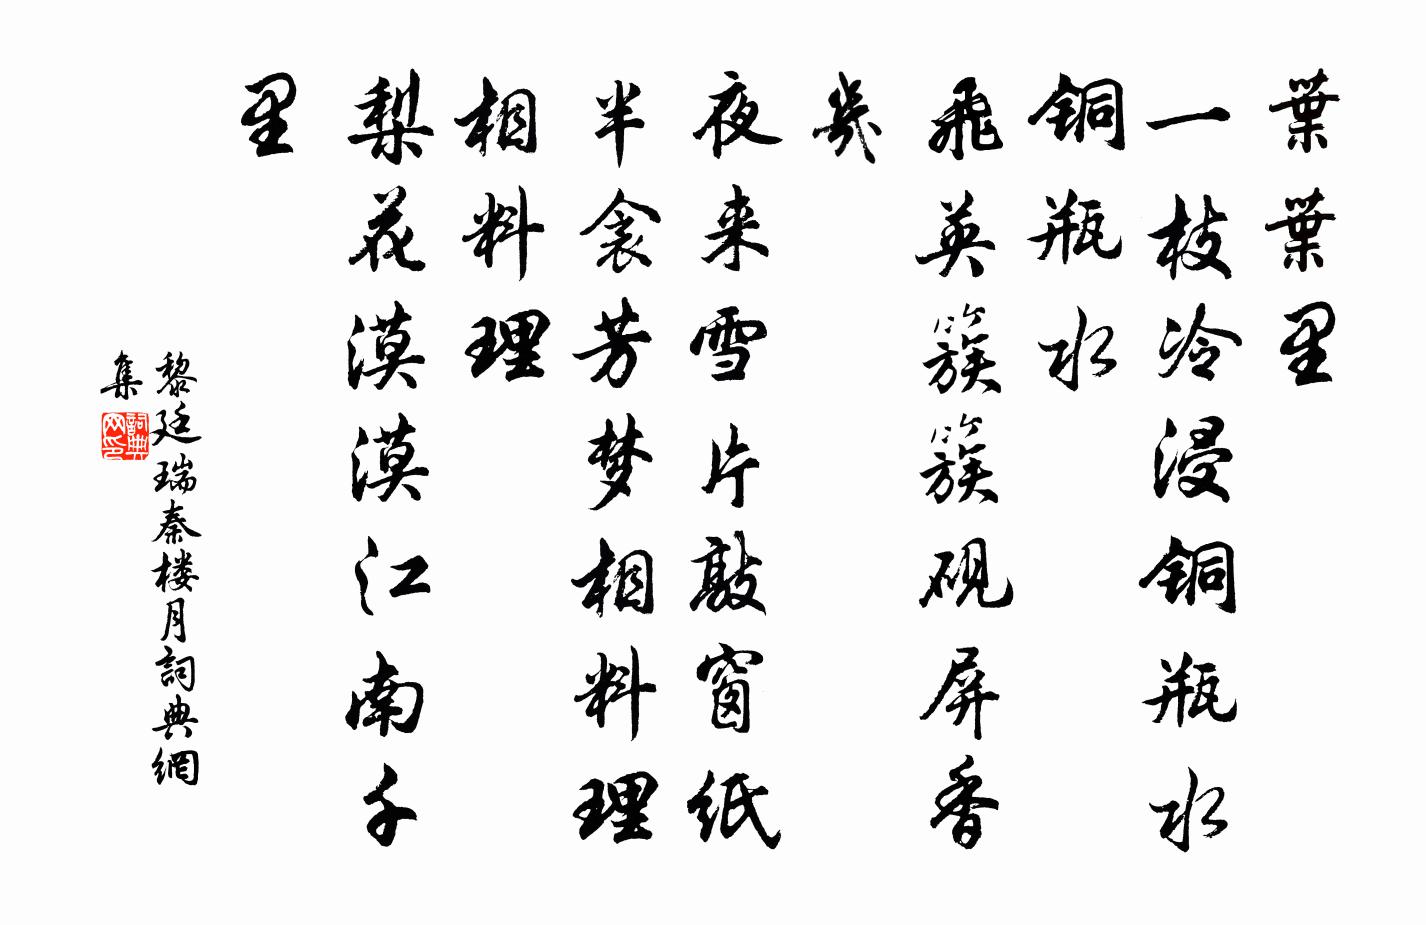 葉葉里
一枝冷浸铜瓶水
铜瓶水
飛英簇簇砚屏香
幾
夜来雪片敲窗纸
半衾芳梦相料理
相料理
梨花漠漠江南千
里
黎廷瑞秦楼月詞典網
集
詞典网印